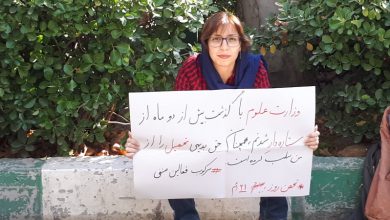 وزارت علوم با گذشت بیش از دو ماه از
ستاره‌دار شدنم همچنان حق بدیهی تحصیل را از
من سلب کرده است
#سرکوب_فعالین_صنفی
#تحصن_روز_۲۱ام